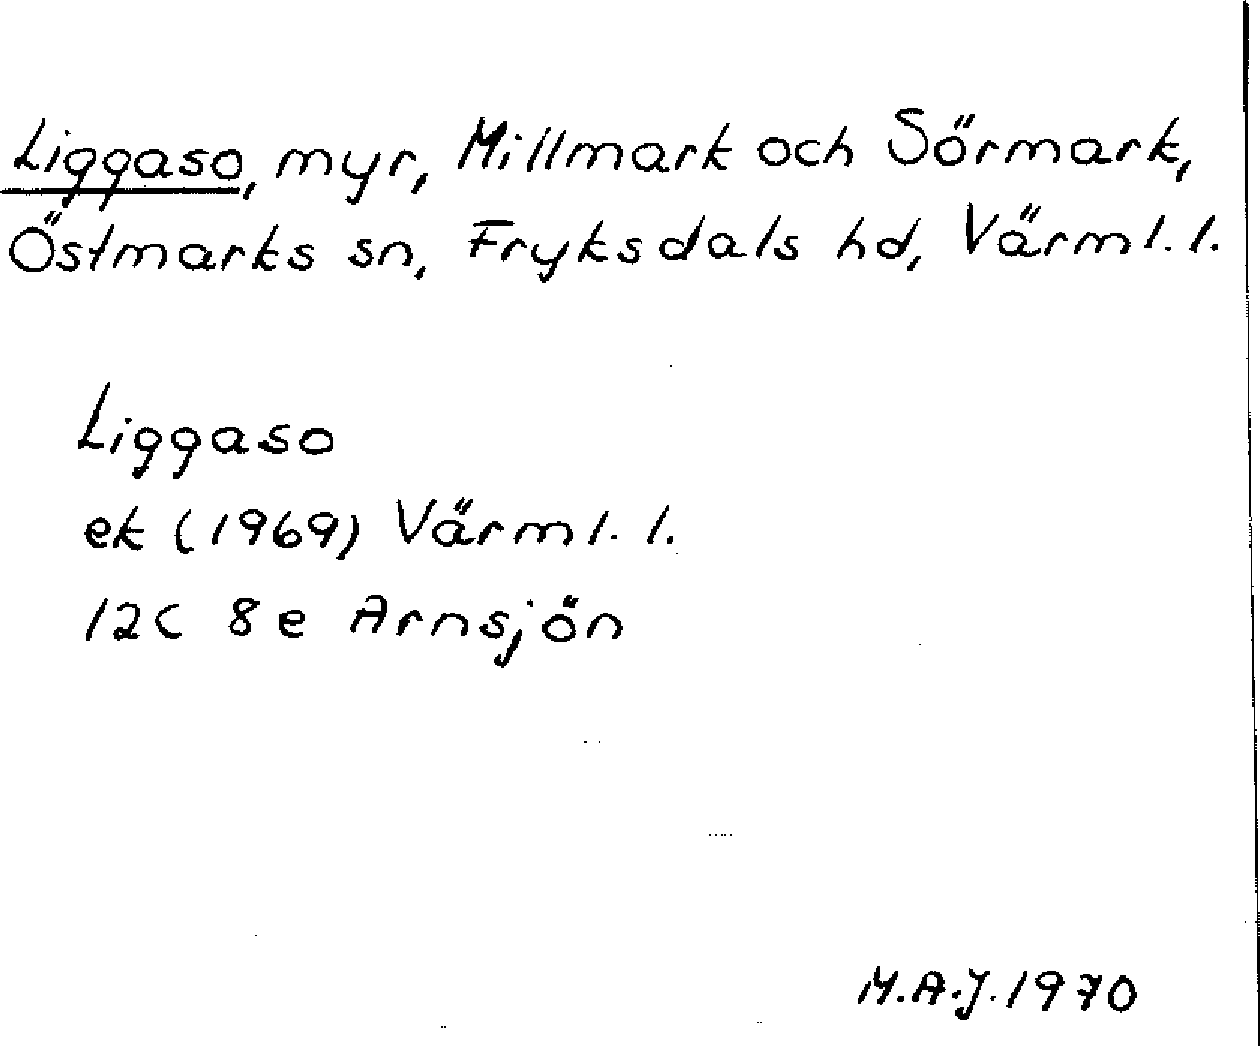 Liggaso, myr, Millmark och Sörmark,
Östmarks sn, Fryksdals hd, Värml. l.
Liggaso
ek (1969) Värml. l.
12C 8e Arnsjön
M.A.J. 1970